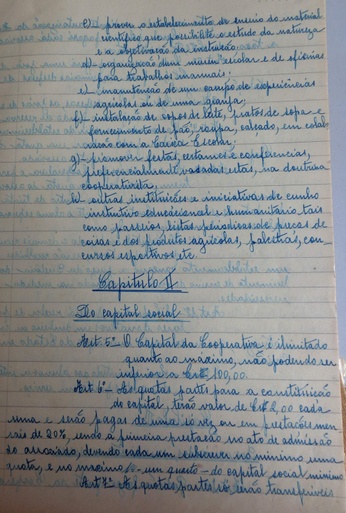 c) prover o estabelecimento de ensino do material
cientifico que possibilite o estudo da natureza
e a objetivação da instrução.
d) organização dum museu escolar e de oficinas
para trabalhos manuais;
e) manutenção de um campo de experiencias
agricolas ou de uma granja;
f) instalação de copos de leite, pratos de sopa e
fornecimento de pão, roupa, calçado, em colabo
ração com a Caixa Escolar;
g) promover festas, certames e conferencias,
preferencialmente vasadas estas, na doutrina
cooperativista;
h) outras instituições e iniciativas de cunho
instrutivo educacional e humanitário tais
como passeios, listas periodicas de preços de
coisas e dos produtos agricolas, palestras, con
cursos esportivos etc.
Capitulo II
Do capital social
Art. 5º - O Capital da Cooperativa é ilimitado
quanto ao maximo, não podendo ser
inferior a Cr$ 100,00.
Art 6º - As quotas partes para a constituição
do capital, terão valor de Cr$ 2,00 cada
uma e serão pagas de uma só vez ou em prestações men
sais de 20%, sendo a primeira prestação no ato de admissão
do associado, devendo cada um subscrever no minimo uma
quota, e no maximo um quarto do capital social minimo
Art 7º As quotas partes só serão transferiveis